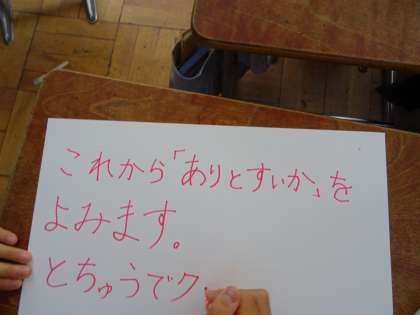 これから「ありとすいか」を
よみます。
とちゅうでク